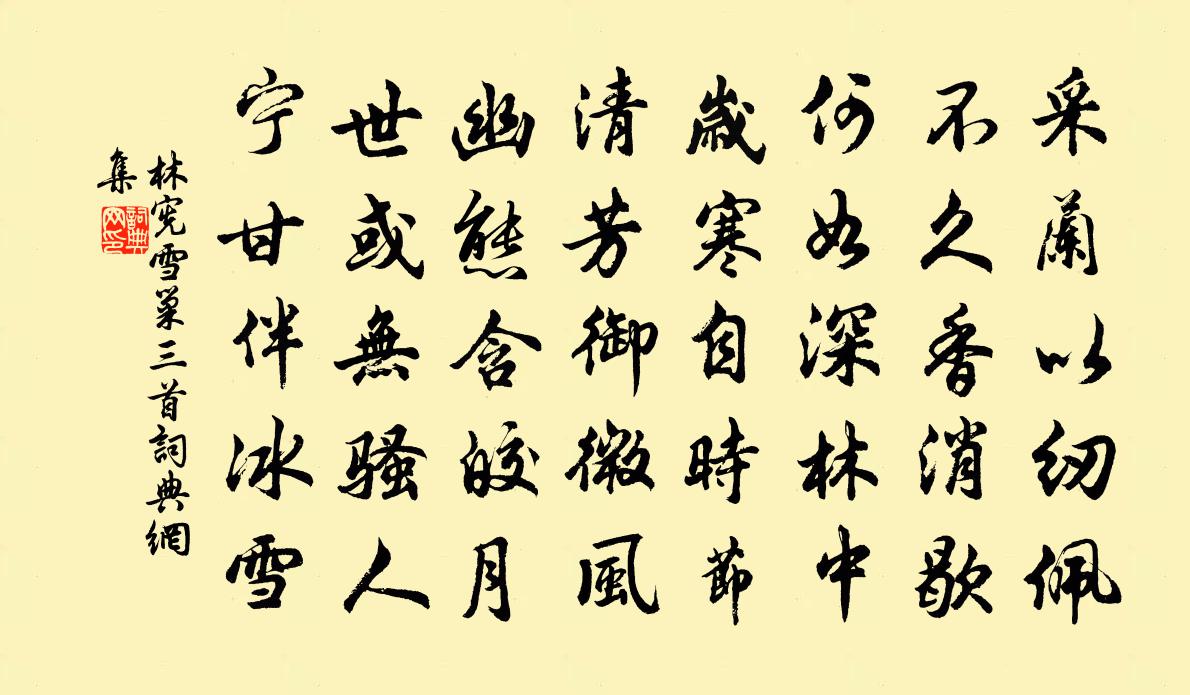 采蘭以纫佩
不久香消歇
何如深林中
歲寒自時節
清芳御微風
幽態含皎月
世或無騷人
宁甘伴冰雪
林宪雪巢三首詞典網
集
詞典
网印